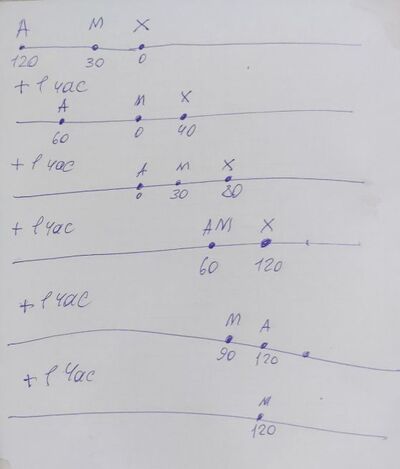 А М Х
120 30 0
+ 1 час
А М Х
60 0 40
+ 1 час
А М Х
0 30 80
+ 1 час
АМ Х
60 120
+ 1 час
М А
90 120
+ 1 час
М
120